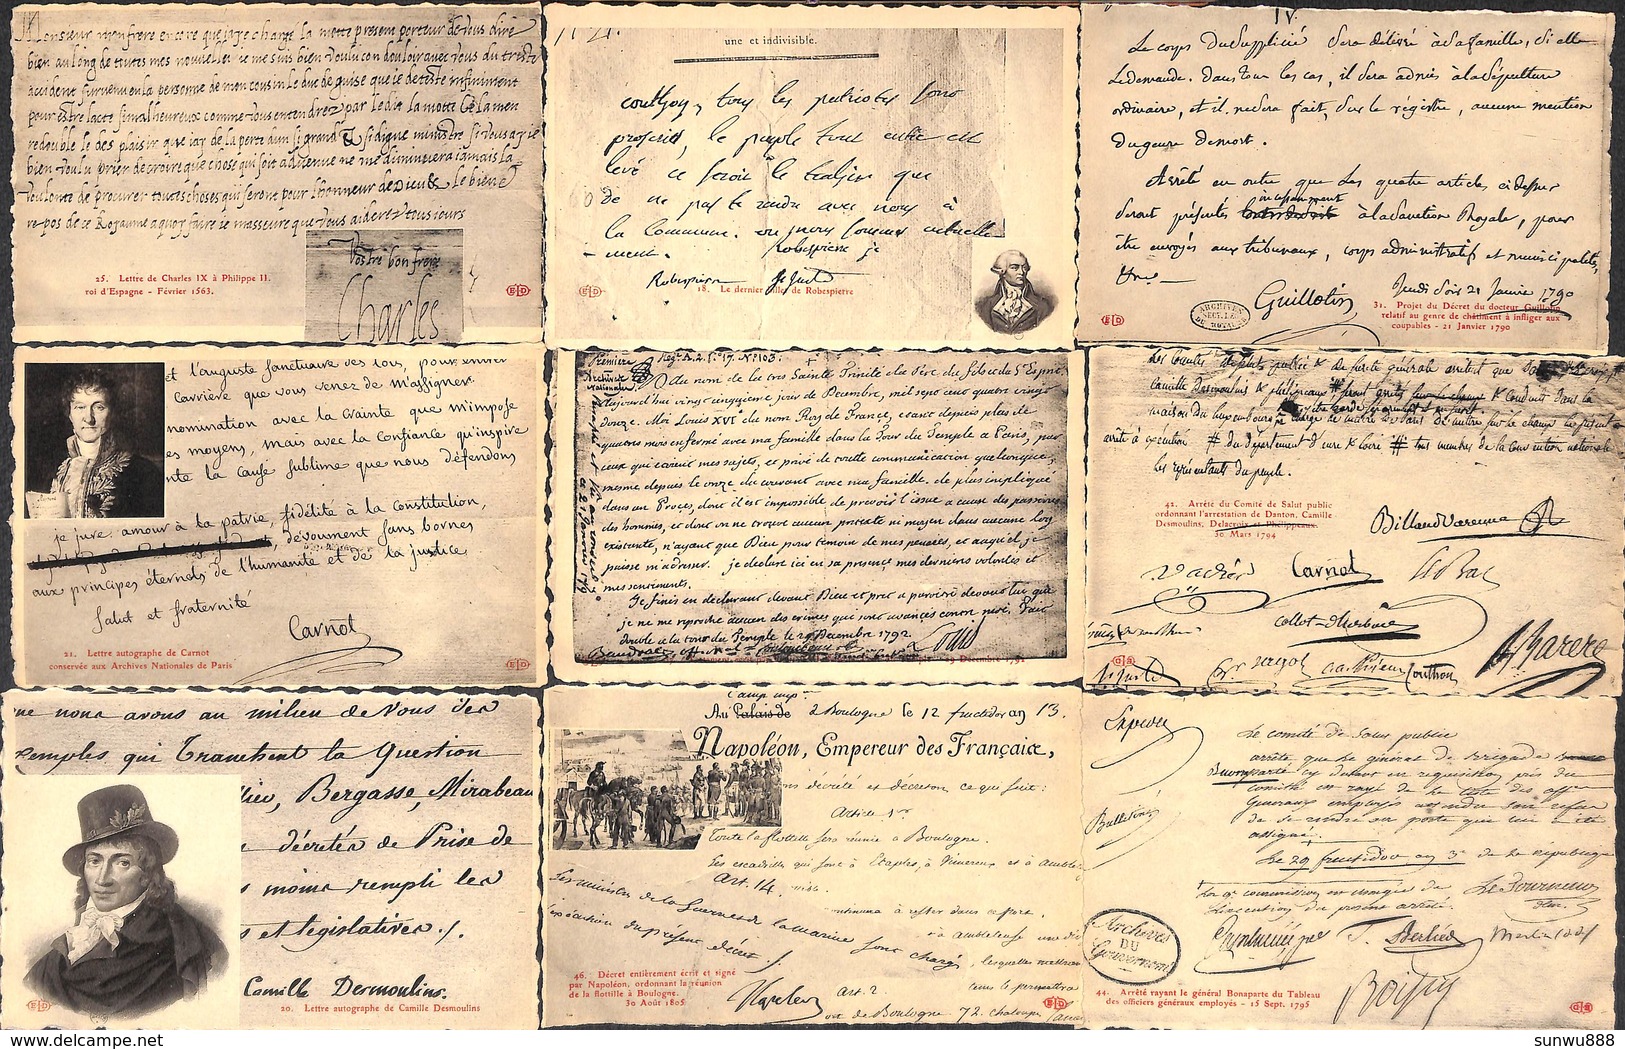 Monsieur mon frere encore que iaye charge la motte present porteur de vous dire
bien au long de toutes mes nouvelles ie me suis bien voulu condouloir avec vous du triste
accident survenu en la personne de mon cousin le duc de guise que ie deteste infiniment
pour estre lacte si malheureux comme vous entendrez par ledit la motte
redouble le desplaisir que iay de la perte dun si grand et si digne ministre si vous ay ie
bien voulu prier de croire que chose qui soit advenue ne me diminuera iamais la
volonte de procurer toutes choses qui seront pour lhonneur de Dieu le bien
repos de ce Royaume a quoy faire ie masseure que vous aiderez tousiours
Vostre bon frere
Charles
25. Lettre de Charles IX à Philippe II.
roi d'Espagne - Février 1563.
ED
une et indivisible.
couthon, tous les patriotes sont
proscrits, le peuple tout entier est
levé ce seroit le trahir que
de ne pas te rendre avec nous à
la Commune. ou nous sommes actuelle
- ment.
Robespierre je
Robespierre St Just
18. Le dernier billet de Robespierre
ED
IV.
Le corps du Supplicié sera délivré à sa famille, si elle
le demande. Dans tous les cas, il sera admis à la sépulture
ordinaire, et il ne sera fait, sur le régistre, aucune mention
du genre de mort.
Arrêté en outre que les quatre articles ci dessus
seront présentés incessamment à la Sanction Royale, pour
être envoyés aux tribunaux, corps administratifs et municipalités,
&c.
Jeudi soir 21 Janvier 1790
Guillotin
31. Projet du Décret du docteur Guillotin
relatif au genre de châtiment à infliger aux
coupables - 21 Janvier 1790
ED
et l'auguste sanctuaire des lois, pour suivre
carrière que vous venez de m'assigner.
nomination avec la crainte que m'impose
es moyens, mais avec la confiance qu'inspire
nte la cause sublime que nous défendons
je jure amour à la patrie, fidélité à la constitution,
dévoument sans bornes
aux principes éternels de l'humanité et de la justice
Salut et fraternité
Carnot
21. Lettre autographe de Carnot
conservée aux Archives Nationales de Paris
ED
Première Reg. A. 2. f. 17. N° 103.
Archives Nationales
Au nom de la tres Sainte Trinité du Pere du fils et du St Esprit
Aujourd'hui vingt cinquieme jour de Decembre, mil sept cent quatre vingt
douze. Moi Louis XVI du nom Roy de France, etant depuis plus de
quatre mois enfermé avec ma famille dans la Tour du Temple a Paris, par
ceux qui etoient mes sujets, et privé de toutte communication quelconque,
mesme depuis le onze du courant avec ma famille. de plus impliqué
dans un Procès, dont il est impossible de prevoir l'issue a cause des passions
des hommes, et dont on ne trouve aucun pretexte ni moyen dans aucune Loy
existante, n'ayant que Dieu pour temoin de mes pensées, et auquel je
puisse m'adresser. je declare ici en sa presence mes dernieres volontés et
mes sentiments.
Je finis en declarant devant Dieu et pret a paroitre devant lui que
je ne me reproche aucun des crimes qui sont avancés contre moi. Fait
double a la tour du Temple le 25 Decembre 1792.
Louis
Les Comités de salut public & de sureté générale arrêtent que
Camille Desmoulins & philippeaux seront arrêtés & Conduits dans la
maison du Luxembourg
charge le maire de Paris de mettre sur le champ le présent
arrêté à exécution # du département d'eure & loire # tous membres de la Convention nationale
les représentants du peuple.
42. Arrêté du Comité de Salut public
ordonnant l'arrestation de Danton, Camille
Desmoulins, Delacroix et Philippeaux.
30 Mars 1794
Billaud Varenne
Vadier Carnot Le Bas
Collot d'herbois
B Barere
St Just Couthon
ED
ne nous avons au milieu de Nous des
emples qui Tranchent la Question
lieu, Bergasse, Mirabeau
décrétés de Prise de
moins rempli les
s et législatives ./.
Camille Desmoulins.
20. Lettre autographe de Camille Desmoulins
ED
Camp imp.
Au Palais de à Boulogne le 12 fructidor an 13.
Napoléon, Empereur des Français,
ns décrété et décrétons ce qui suit:
Article 1er
Toute la flottille sera réunie à Boulogne.
Les escadrilles qui sont à Etaples, à Vimereux et à Amble
Art. 14.
Les ministres de la Guerre et de la marine sont chargés,
l'exécution du présent décret ./.
continuera à rester dans ce port.
à Ambleteuse une di
lesquelles mettron
tems le permettra
Art. 2.
ort de Boulogne 72 chaloupes
Napoleon
46. Décret entièrement écrit et signé
par Napoléon, ordonnant la réunion
de la flottille à Boulogne.
30 Août 1805.
ED
Le comité de Salut public
arrête, que le général de brigade
Buonaparte cy devant en requisition près du
comité est rayé de la liste des off
Généraux employés attendu son refus
de se rendre au poste qui lui a été
assigné.
Le 29 fructidor an 3e de la république
La 9e commission est chargée de
l'exécution du présent arrêté.
Cambacérès T. Berlier Merlin
Boissy
Archives
DU
Gouvernement
44. Arrêté rayant le général Bonaparte du Tableau
des officiers généraux employés - 15 Sept. 1795
ED
sunwu888